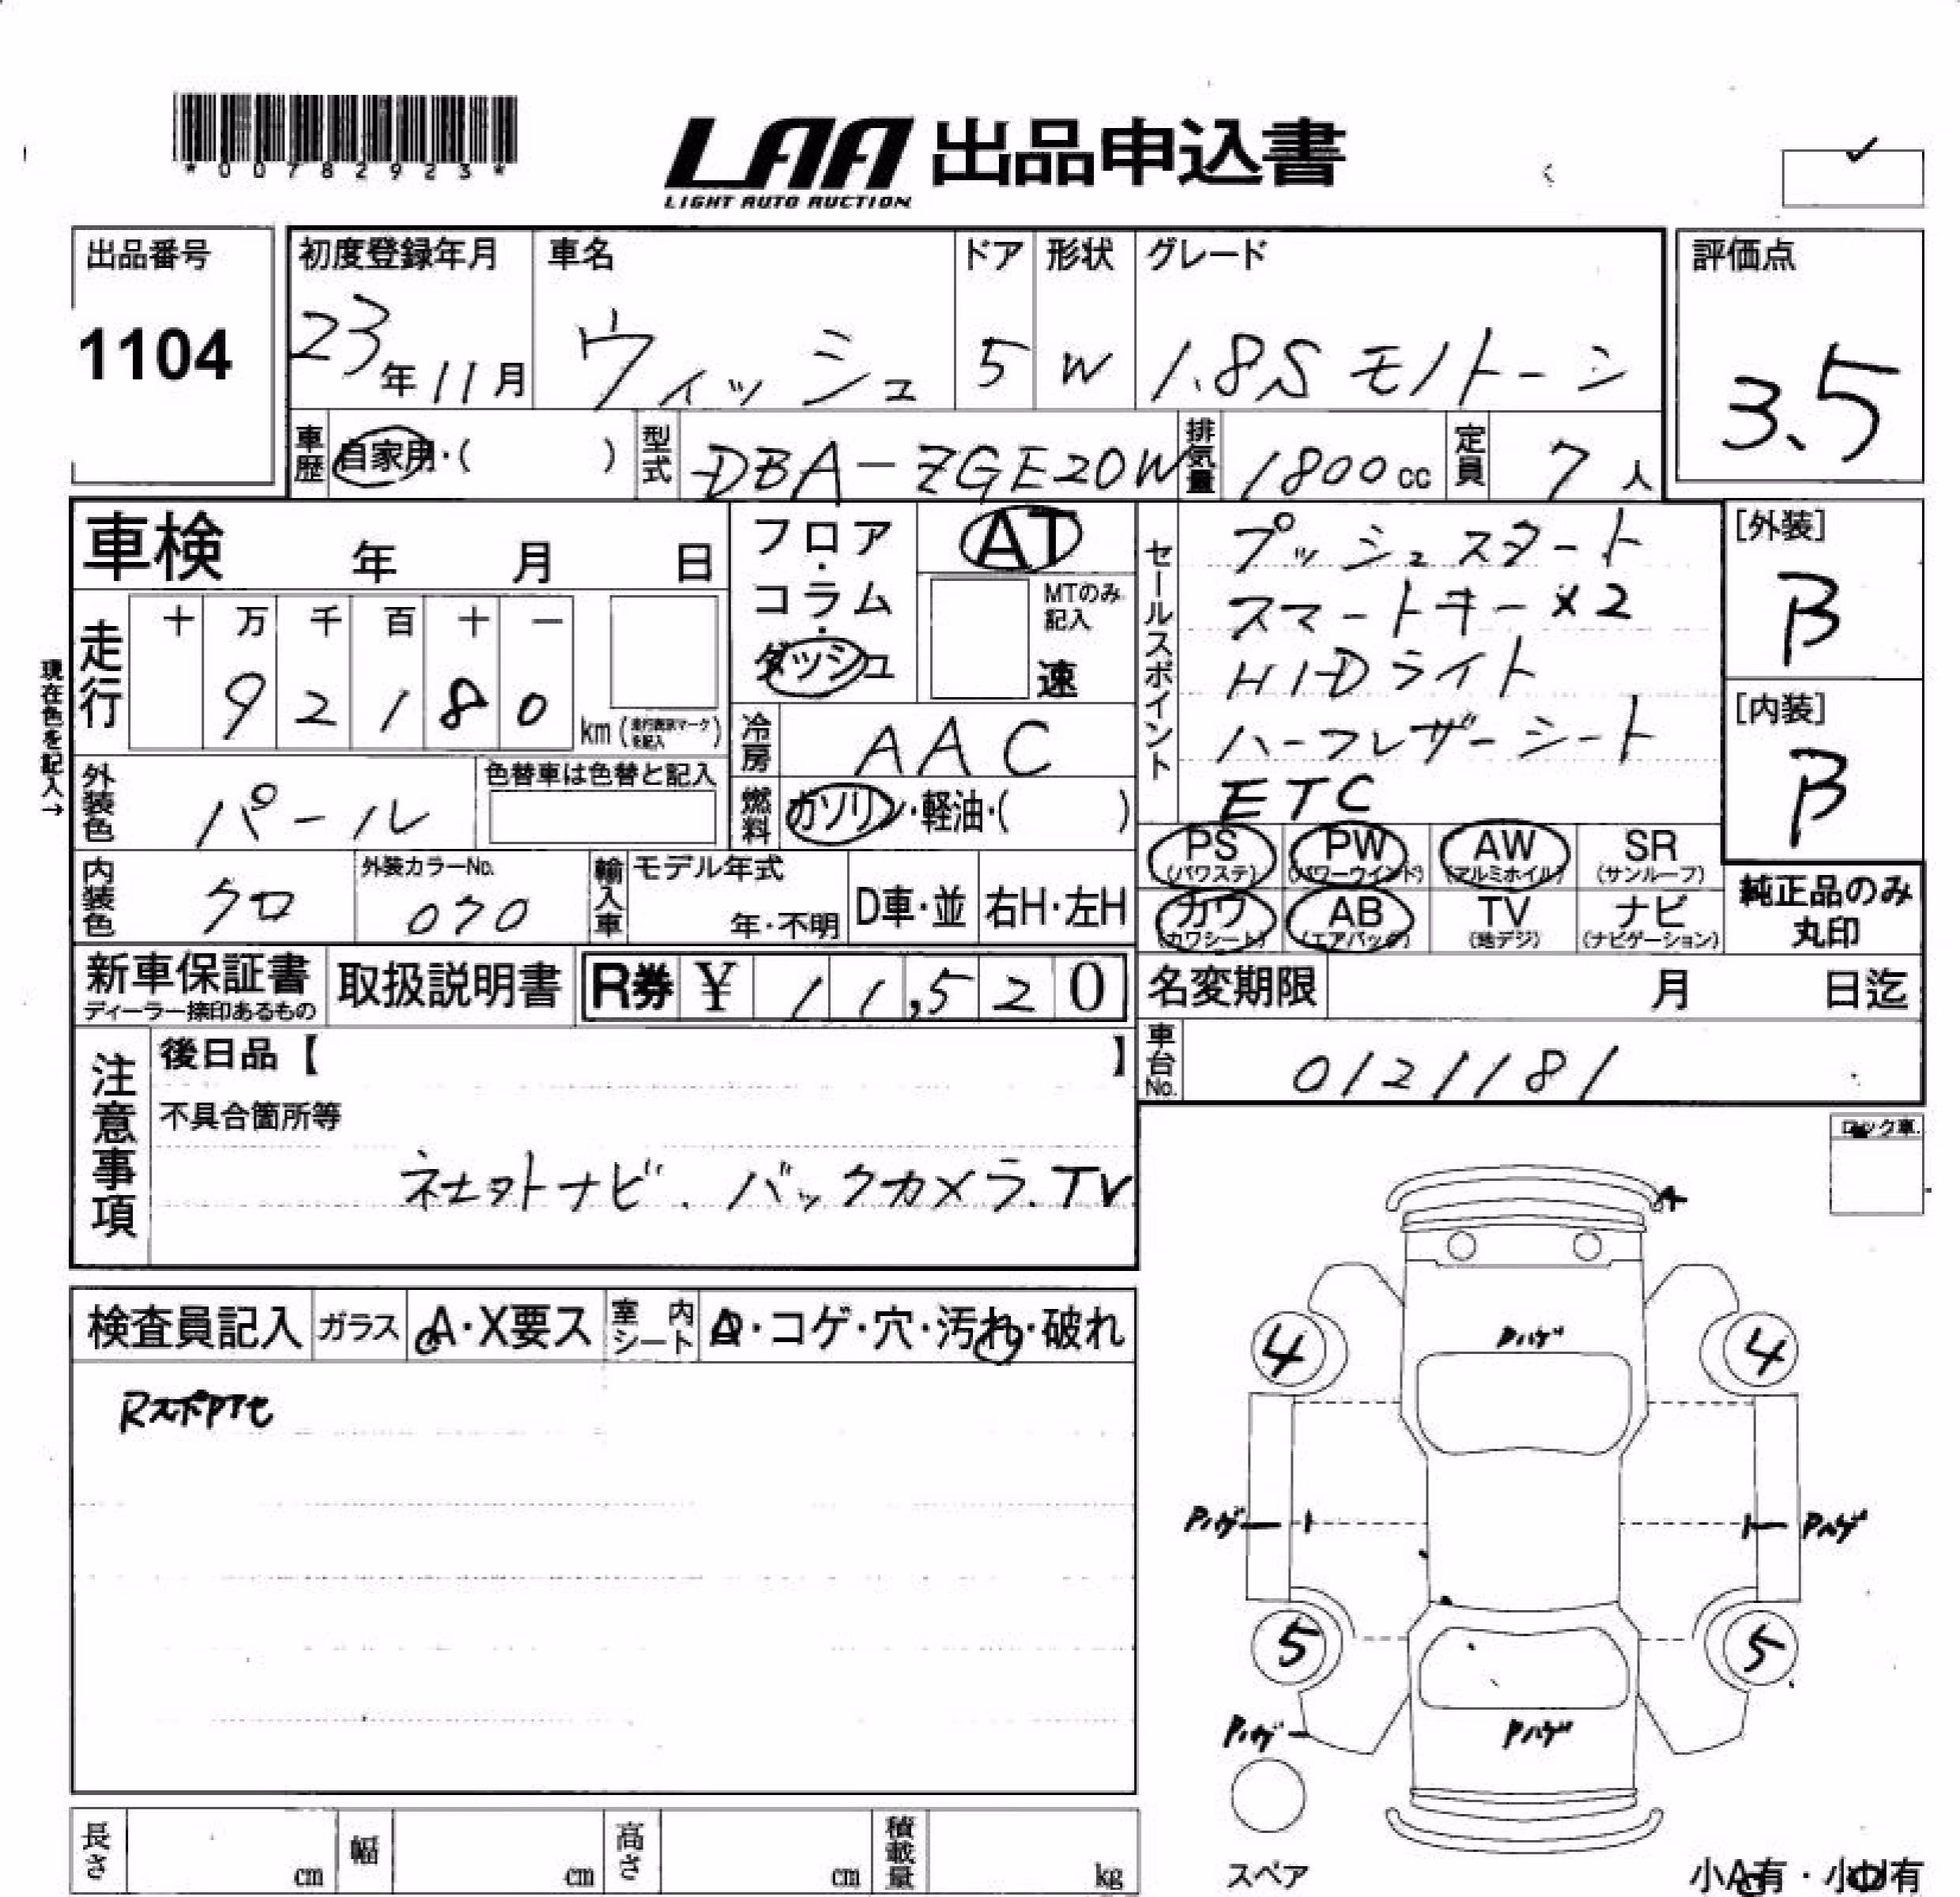 *00782923*
LAA 出品申込書
LIGHT AUTO AUCTION
出品番号
1104
初度登録年月
23年11月
車名
ウィッシュ
ドア
5
形状
W
グレード
1.8S モノトーン
評価点
3.5
車歴
自家用・( )
型式
DBA-ZGE20W
排気量
1800cc
定員
7人
車検 年 月 日
走行
十 万 千 百 十 一
9 2 1 8 0
km(走行表示マークを記入)
現在色を記入→
外装色
パール
色替車は色替と記入
内装色
クロ
外装カラーNo.
070
輸入車
モデル年式
年・不明
D車・並
右H・左H
フロア・コラム・ダッシュ
AT
MTのみ記入
速
冷房
AAC
燃料
ガソリン・軽油・( )
セールスポイント
プッシュスタート
スマートキー×2
HIDライト
ハーフレザーシート
ETC
[外装]
B
[内装]
B
PS
(パワステ)
PW
(パワーウインド)
AW
(アルミホイル)
SR
(サンルーフ)
カワ
(カワシート)
AB
(エアバック)
TV
(地デジ)
ナビ
(ナビゲーション)
純正品のみ
丸印
新車保証書
ディーラー捺印あるもの
取扱説明書
R券 ¥ 11,520
名変期限 月 日迄
車台No.
0121181
注意事項
後日品【 】
不具合箇所等
ナビ.バックカメラ.TV
ロック車
検査員記入
ガラス
A・X要ス
室内シート
・コゲ・穴・汚れ・破れ
A
Pハゲ
4
4
Pハゲ
Pハゲ
5
5
Pハゲ
Pハゲ
スペア
小A有・小U有
長さ cm
幅 cm
高さ cm
積載量 kg